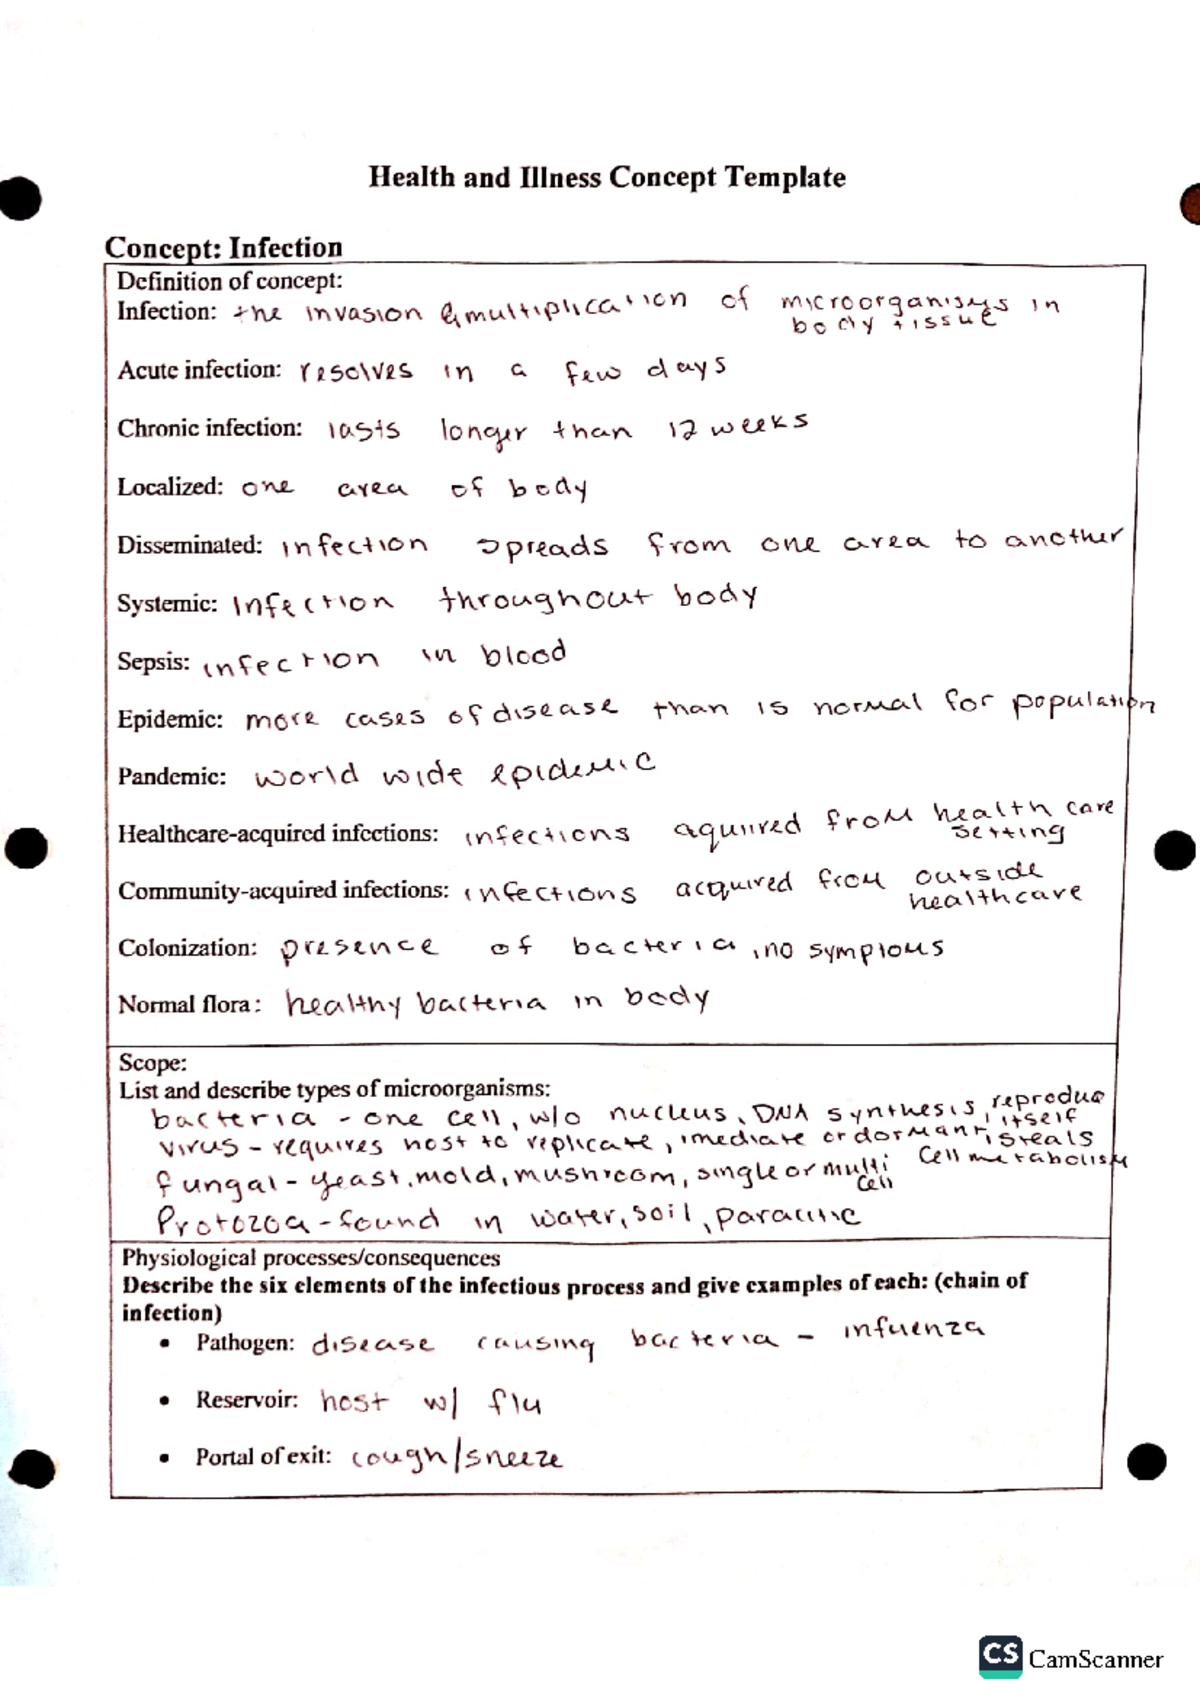 Health and Illness Concept Template
Concept: Infection
Definition of concept:
Infection: the invasion & multiplication of microorganisms in
body tissue
Acute infection: resolves in a few days
Chronic infection: lasts longer than 12 weeks
Localized: one area of body
Disseminated: infection spreads from one area to another
Systemic: Infection throughout body
Sepsis: infection in blood
Epidemic: more cases of disease than is normal for population
Pandemic: world wide epidemic
Healthcare-acquired infections: infections aquired from health care
setting
Community-acquired infections: infections acquired from outside
healthcare
Colonization: presence of bacteria, no sympioms
Normal flora: healthy bacteria in body
Scope:
List and describe types of microorganisms:
bacteria - one cell, w/o nucleus, DNA synthesis, reproduce
itself
virus - requires host to replicate, imediate or dormant, steals
cell metabolism
fungal - yeast, mold, mushroom, single or multi
cell
Protozoa - found in water, soil,
Physiological processes/consequences
Describe the six elements of the infectious process and give examples of each: (chain of
infection)
• Pathogen: disease causing bacteria - infuenza
• Reservoir: host w/ flu
• Portal of exit: cough/sneeze
CS CamScanner